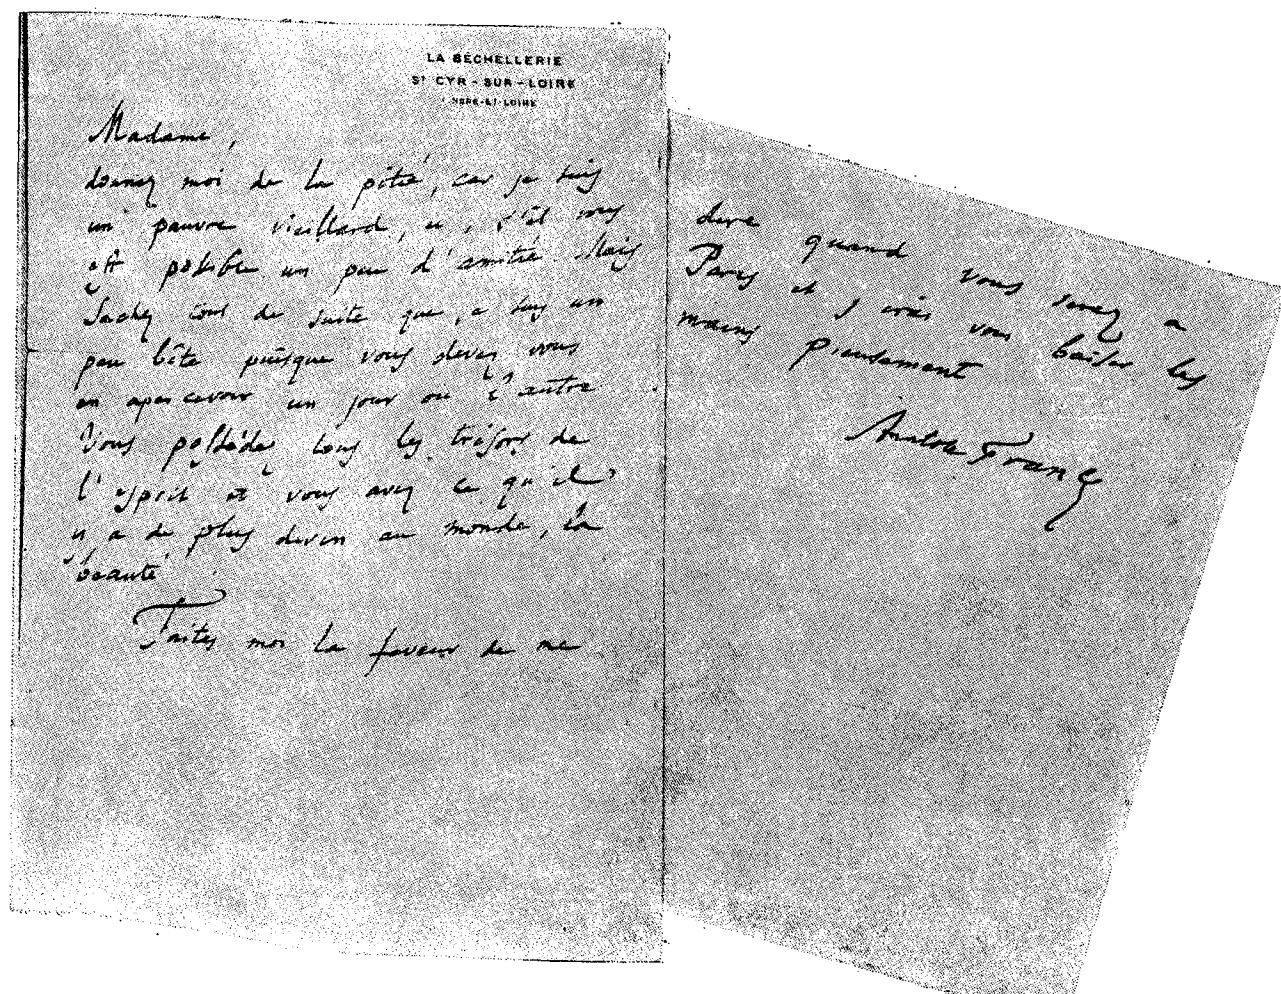 LA BÉCHELLERIE
St CYR-SUR-LOIRE
INDRE-ET-LOIRE
Madame,
donnez moi de la pitié, car je suis
un pauvre vieillard, et, s'il vous
est possible un peu d'amitié Mais
Sachez tout de suite que je suis un
peu bête puisque vous devez vous
en apercevoir un jour ou l'autre
Vous possédez tous les trésors de
l'esprit et vous avez ce qu'il
y a de plus divin au monde, la
beauté
Faites moi la faveur de me
dire quand vous serez a
Paris et j irai vous baiser les
mains pieusement
Anatole France